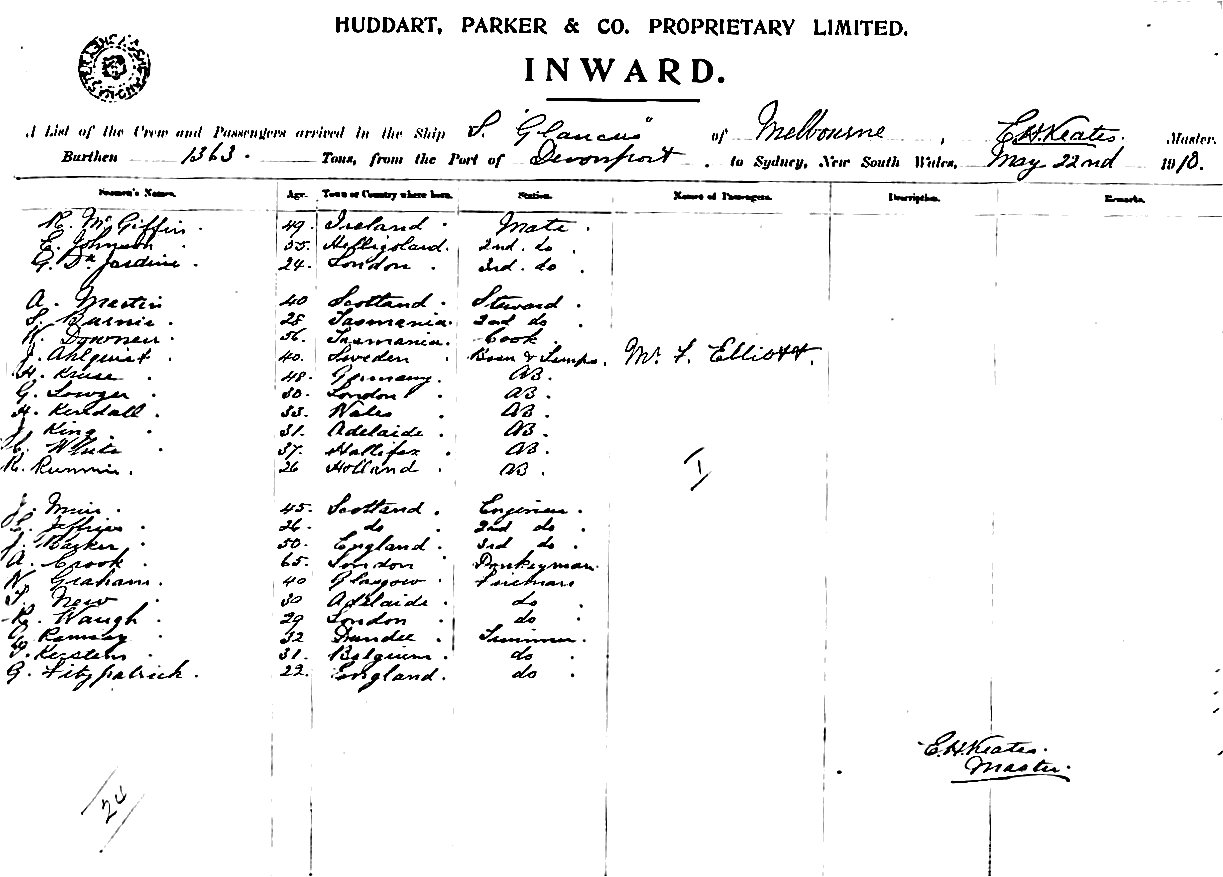 HUDDART, PARKER & CO. PROPRIETARY LIMITED.
INWARD.
A List of the Crew and Passengers arrived in the Ship S. "Glaucus" of Melbourne, E.H. Keates. Master.
Burthen 1363. Tons, from the Port of Devonport. to Sydney, New South Wales, May 22nd 1910.
Seamen's Names. Age. Town or Country where born. Station. Names of Passengers. Description. Remarks.
R. McGiffin. 49. Ireland. Mate.
E. Johnson. 55. Helligoland. 2nd. do.
G. Dn Jardine. 24. London. 3rd. do.
A. Martin 40 Scotland. Steward.
S. Barnie. 28 Tasmania. 2nd do.
W. Downen. 56. Tasmania. Cook.
J. Ahlquist. 40. Sweden Bosn & Lamps. Mr. F. Elliott.
H. Kruse. 48. Germany. AB.
G. Sawyer. 30. London. AB.
H. Kendall. 33. Wales. AB.
J. King. 31. Adelaide. AB.
White. 37. Hallifax. AB.
R. Rummie. 26 Holland. AB.
I
J. Muir. 45. Scotland. Engineer.
Jeffries. 26. do. 2nd do.
J. Barker. 50. England. 3rd do.
A. Crook. 65. London Donkeyman.
W. Graham. 40. Glasgow. Fireman
New. 30 Adelaide. do.
R. Waugh. 29 London. do.
Ramsay. 32 Dundee. Trimmer.
Kersten. 31. Belgium. do.
G. Fitzpatrick. 22. England. do.
E.H. Keates.
Master.
24